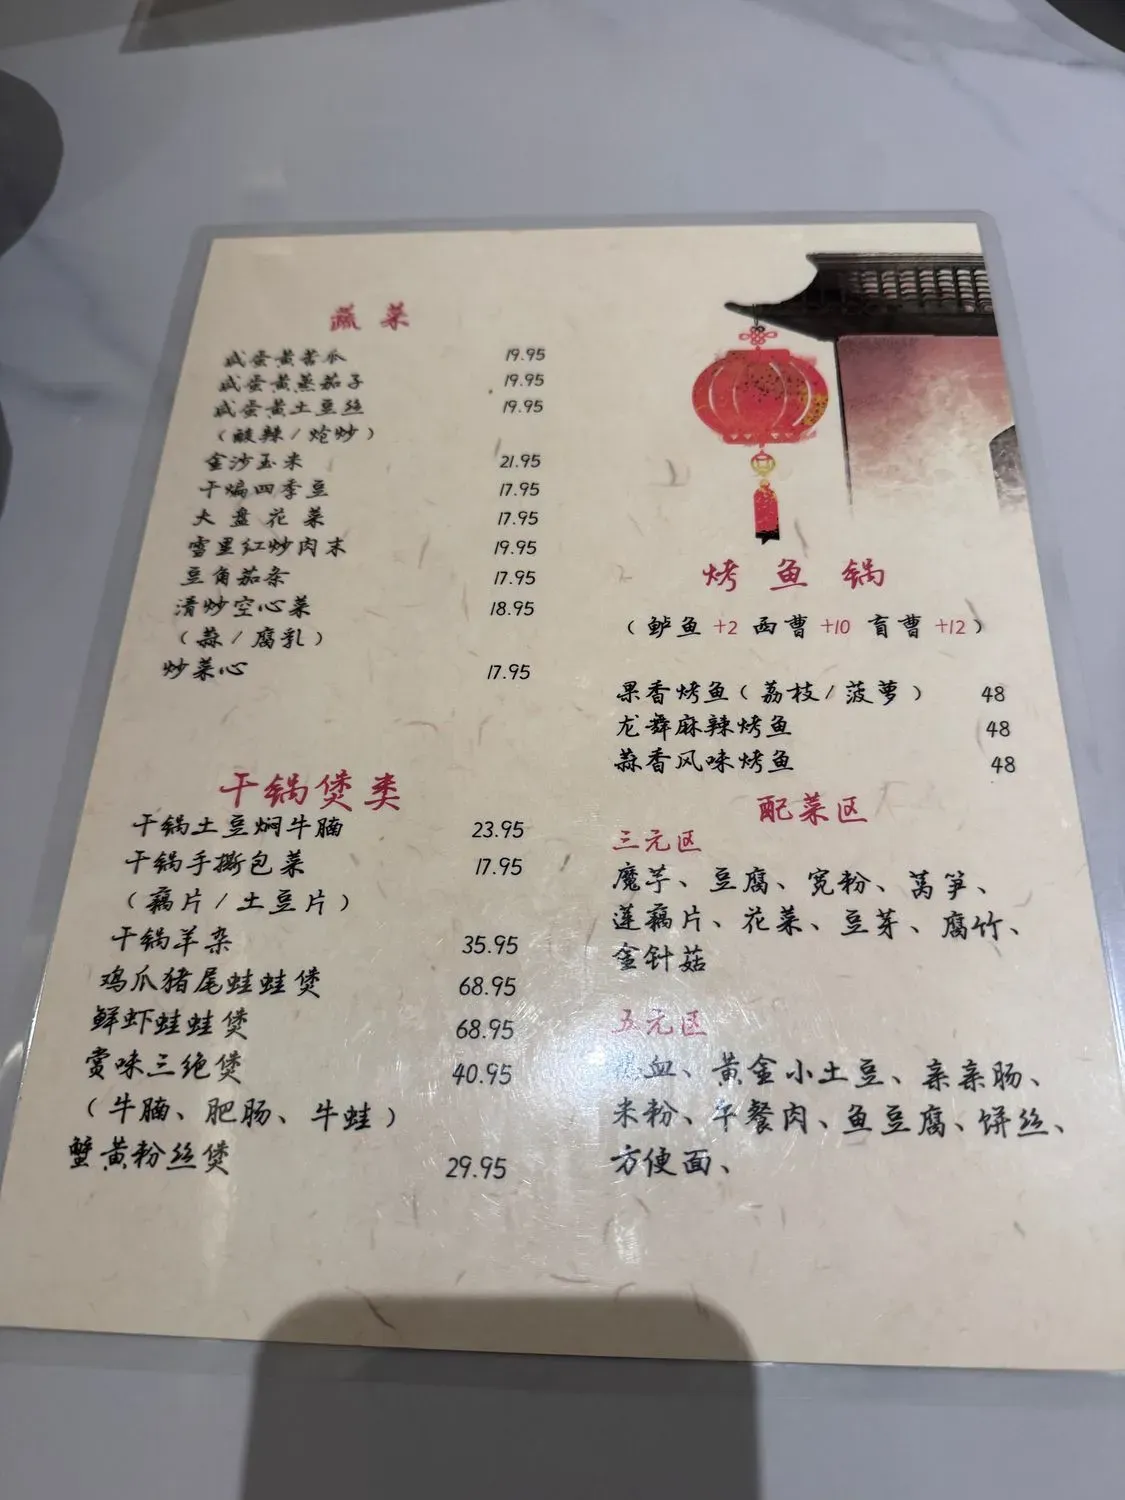 蔬菜
咸蛋黄苦瓜 19.95
咸蛋黄蒸茄子 19.95
咸蛋黄土豆丝 19.95
（酸辣/炝炒）
金沙玉米 21.95
干煸四季豆 17.95
大盘花菜 17.95
雪里红炒肉末 19.95
豆角茄条 17.95
清炒空心菜 18.95
（蒜/腐乳）
炒菜心 17.95
干锅煲类
干锅土豆焖牛腩 23.95
干锅手撕包菜 17.95
（藕片/土豆片）
干锅羊杂 35.95
鸡爪猪尾蛙蛙煲 68.95
鲜虾蛙蛙煲 68.95
赏味三绝煲 40.95
（牛腩、肥肠、牛蛙）
蟹黄粉丝煲 29.95
烤鱼锅
（鲈鱼 +2 西曹 +10 盲曹 +12）
果香烤鱼（荔枝/菠萝） 48
龙舞麻辣烤鱼 48
蒜香风味烤鱼 48
配菜区
三元区
魔芋、豆腐、宽粉、莴笋、
莲藕片、花菜、豆芽、腐竹、
金针菇
五元区
血、黄金小土豆、亲亲肠、
米粉、午餐肉、鱼豆腐、饼丝、
方便面、